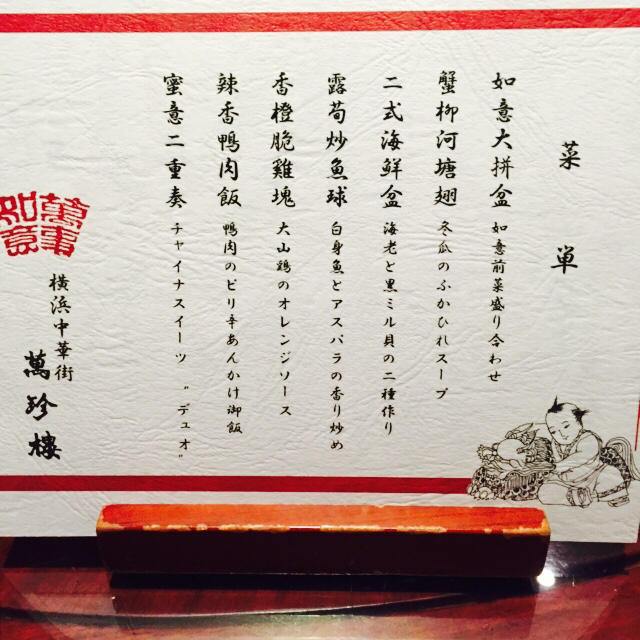 菜單
如意大拼盆 如意前菜盛り合わせ
蟹柳河塘翅 冬瓜のふかひれスープ
二式海鮮盆 海老と黒ミル貝の二種作り
露荀炒魚球 白身魚とアスパラの香り炒め
香橙脆雞塊 大山鶏のオレンジソース
辣香鴨肉飯 鴨肉のピリ辛あんかけ御飯
蜜意二重奏 チャイナスイーツ "デュオ"
横浜中華街
萬珍樓
萬事如意